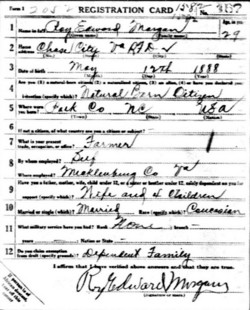 Form 1 REGISTRATION CARD
1 Name in full Roy Edward Morgan 29
2 Chase City Va RFD
3 Date of birth May 12th 1888
4 Natural Born Citizen
5 Where were you born? Park Co NC USA
6 If not a citizen, of what country are you a citizen or subject?
7 What is your present trade, occupation, or office? Farmer
8 By whom employed? Self
Where employed? Mecklenburg Co Va
9 Have you a father, mother, wife, child under 12, or a sister or brother under 12, solely dependent on you for support (specify which)? Wife and 4 Children
10 Married or single (which)? Married Race (specify which)? Caucasian
11 What military service have you had? Rank None branch
years Nation or State
12 Do you claim exemption from draft (specify grounds)? Dependent Family
I affirm that I have verified above answers and that they are true.
R. Edward Morgan